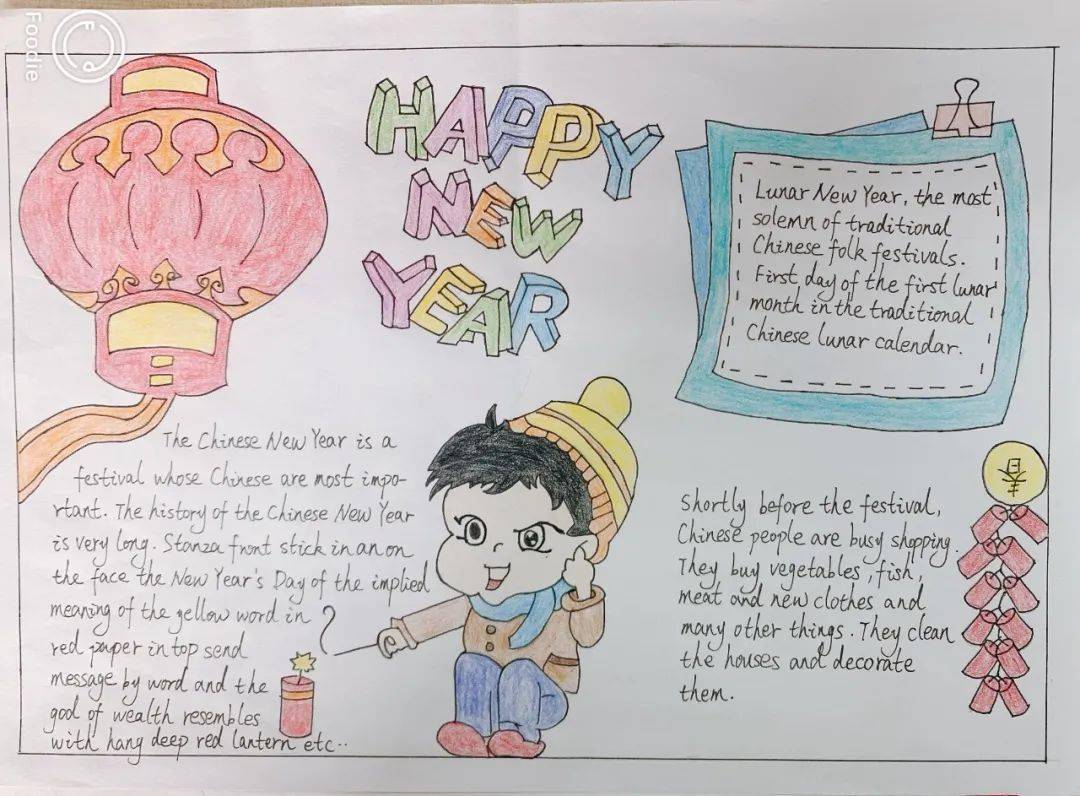 Foodie
HAPPY
NEW
YEAR
Lunar New Year, the most
solemn of traditional
Chinese folk festivals.
First day of the first lunar
month in the traditional
Chinese lunar calendar.
The Chinese New Year is a
festival whose Chinese are most impo-
rtant. The history of the Chinese New Year
is very long. Stanza front stick in an on
the face the New Year's Day of the implied
meaning of the yellow word in
red paper in top send
message by word and the
god of wealth resembles
with hang deep red lantern etc..
Shortly before the festival,
Chinese people are busy shopping.
They buy vegetables, fish,
meat and new clothes and
many other things. They clean
the houses and decorate
them.